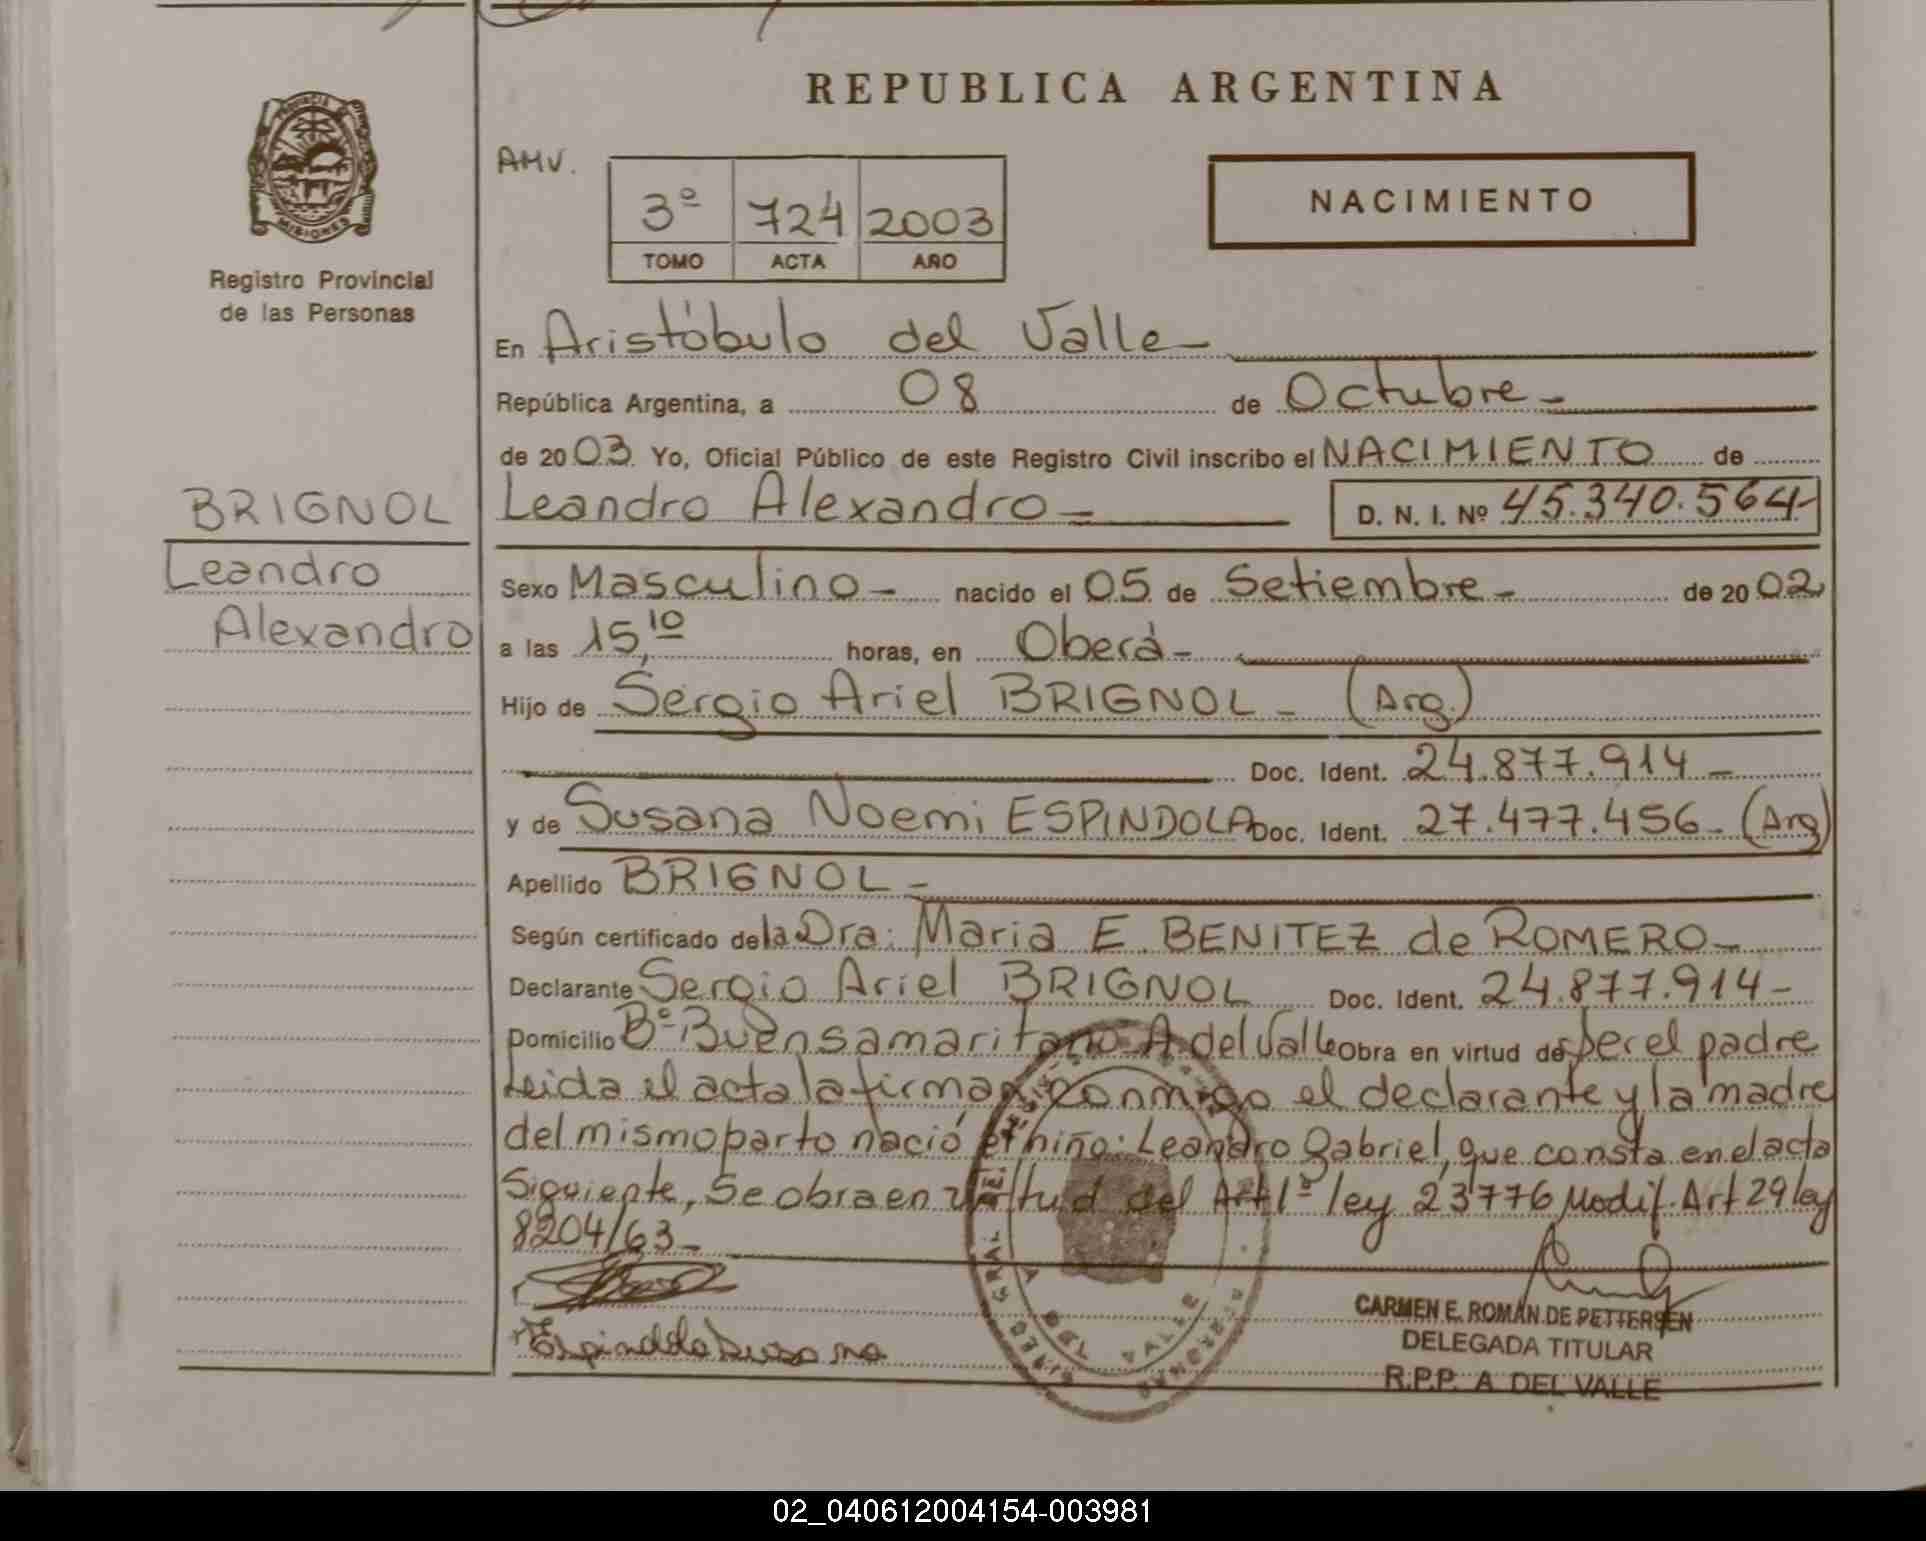 REPUBLICA ARGENTINA
PROVINCIA DE
MISIONES
Registro Provincial
de las Personas
AMV.
3º 724 2003
TOMO ACTA AÑO
NACIMIENTO
En Aristóbulo del Valle
República Argentina, a 08 de Octubre
de 2003 Yo, Oficial Público de este Registro Civil inscribo el NACIMIENTO de
Leandro Alexandro D. N. I. Nº 45.340.564
BRIGNOL
Leandro
Alexandro
Sexo Masculino nacido el 05 de Setiembre de 2002
a las 15,10 horas, en Oberá
Hijo de Sergio Ariel BRIGNOL (Arg.)
Doc. Ident. 24.877.914
y de Susana Noemi ESPINDOLA Doc. Ident. 27.477.456 (Arg)
Apellido BRIGNOL
Según certificado de la Dra: Maria E. BENITEZ de ROMERO
Declarante Sergio Ariel BRIGNOL Doc. Ident. 24.877.914
Domicilio Bº Buen samaritano A del Valle Obra en virtud de ser el padre
Leida el acta la firman conmigo el declarante y la madre
del mismo parto nació el niño: Leandro Gabriel, que consta en el acta
Siguiente, Se obra en virtud del Art 1º ley 23776 Modif. Art 29 ley
8204/63
Espindola Susana
CARMEN E. ROMÁN DE PETTERSEN
DELEGADA TITULAR
R.P.P. A. DEL VALLE
A. DEL VALLE
02_040612004154-003981